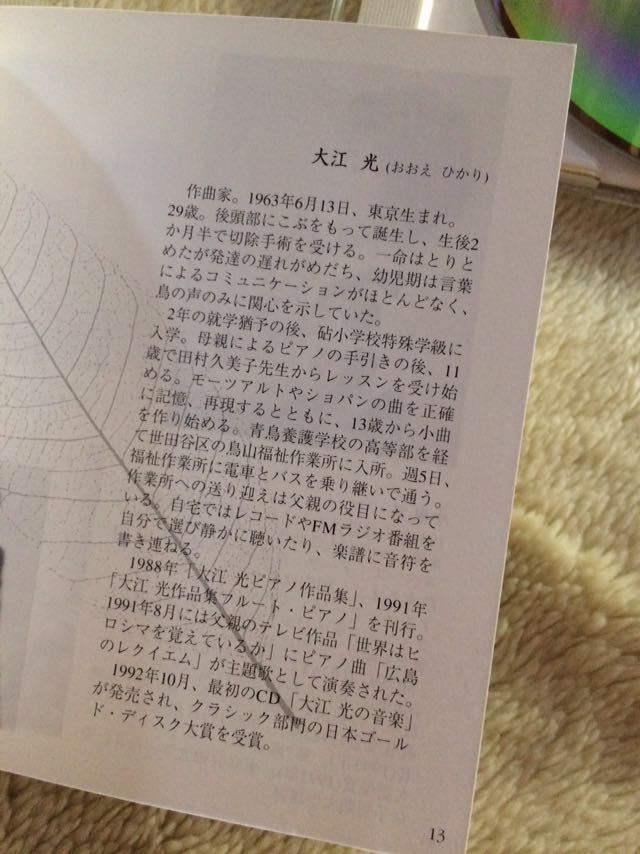 大江 光 (おおえ ひかり)
作曲家。1963年6月13日、東京生まれ。
29歳。後頭部にこぶをもって誕生し、生後2
か月半で切除手術を受ける。一命はとりと
めたが発達の遅れがめだち、幼児期は言葉
によるコミュニケーションがほとんどなく、
鳥の声のみに関心を示していた。
2年の就学猶予の後、砧小学校特殊学級に
入学。母親によるピアノの手引きの後、11
歳で田村久美子先生からレッスンを受け始
める。モーツアルトやショパンの曲を正確
に記憶、再現するとともに、13歳から小曲
を作り始める。青鳥養護学校の高等部を経
て世田谷区の烏山福祉作業所に入所。週5日、
福祉作業所に電車とバスを乗り継いで通う。
作業所への送り迎えは父親の役目になって
いる。自宅ではレコードやFMラジオ番組を
自分で選び静かに聴いたり、楽譜に音符を
書き連ねる。
1988年「大江 光ピアノ作品集」、1991年
「大江 光作品集フルート・ピアノ」を刊行。
1991年8月には父親のテレビ作品「世界はヒ
ロシマを覚えているか」にピアノ曲「広島
のレクイエム」が主題歌として演奏された。
1992年10月、最初のCD「大江 光の音楽」
が発売され、クラシック部門の日本ゴール
ド・ディスク大賞を受賞。
13